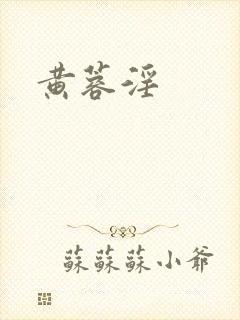 黄蓉淫
蘇蘇蘇小爺